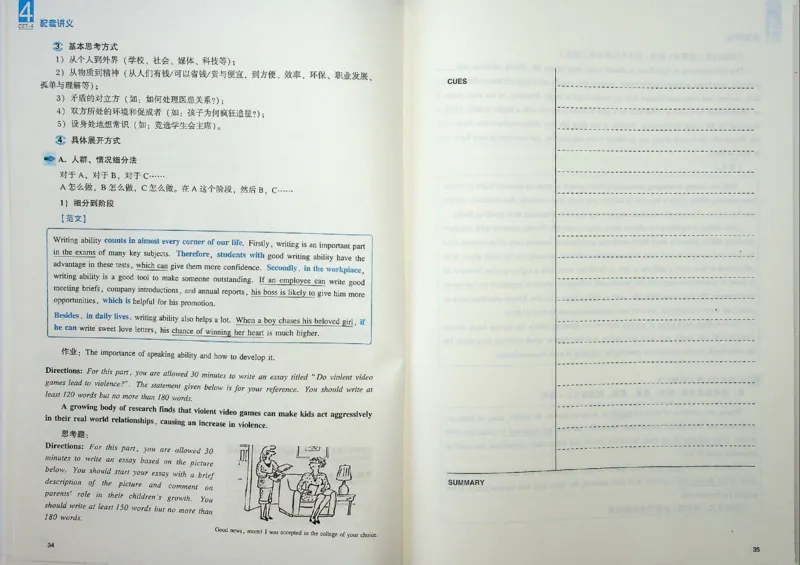 4
CET-4
配套讲义
③ 基本思考方式
1）从个人到外界（学校、社会、媒体、科技等）；
2）从物质到精神（从人们有钱/可以省钱/贵与便宜，到方便、效率、环保、职业发展、
孤单与理解等）；
3）矛盾的对立方（如：如何处理医患关系？）；
4）双方所处的环境和促成者（如：孩子为何疯狂追星？）；
5）设身处地想常识（如：竞选学生会主席）。
④ 具体展开方式
A. 人群、情况细分法
对于 A，对于 B，对于 C……
A 怎么做，B 怎么做，C 怎么做。在 A 这个阶段，然后 B，C……
1）细分到阶段
【范文】
Writing ability counts in almost every corner of our life. Firstly, writing is an important part
in the exams of many key subjects. Therefore, students with good writing ability have the
advantage in these tests, which can give them more confidence. Secondly, in the workplace,
writing ability is a good tool to make someone outstanding. If an employee can write good
meeting briefs, company introductions, and annual reports, his boss is likely to give him more
opportunities, which is helpful for his promotion.
Besides, in daily lives, writing ability also helps a lot. When a boy chases his beloved girl, if
he can write sweet love letters, his chance of winning her heart is much higher.
作业：The importance of speaking ability and how to develop it.
Directions: For this part, you are allowed 30 minutes to write an essay titled "Do violent video
games lead to violence?". The statement given below is for your reference. You should write at
least 120 words but no more than 180 words.
A growing body of research finds that violent video games can make kids act aggressively
in their real world relationships, causing an increase in violence.
思考题：
Directions: For this part, you are allowed 30
minutes to write an essay based on the picture
below. You should start your essay with a brief
description of the picture and comment on
parents' role in their children's growth. You
should write at least 150 words but no more than
180 words.
Good news, mom! I was accepted to the college of your choice.
34
CUES
SUMMARY
35